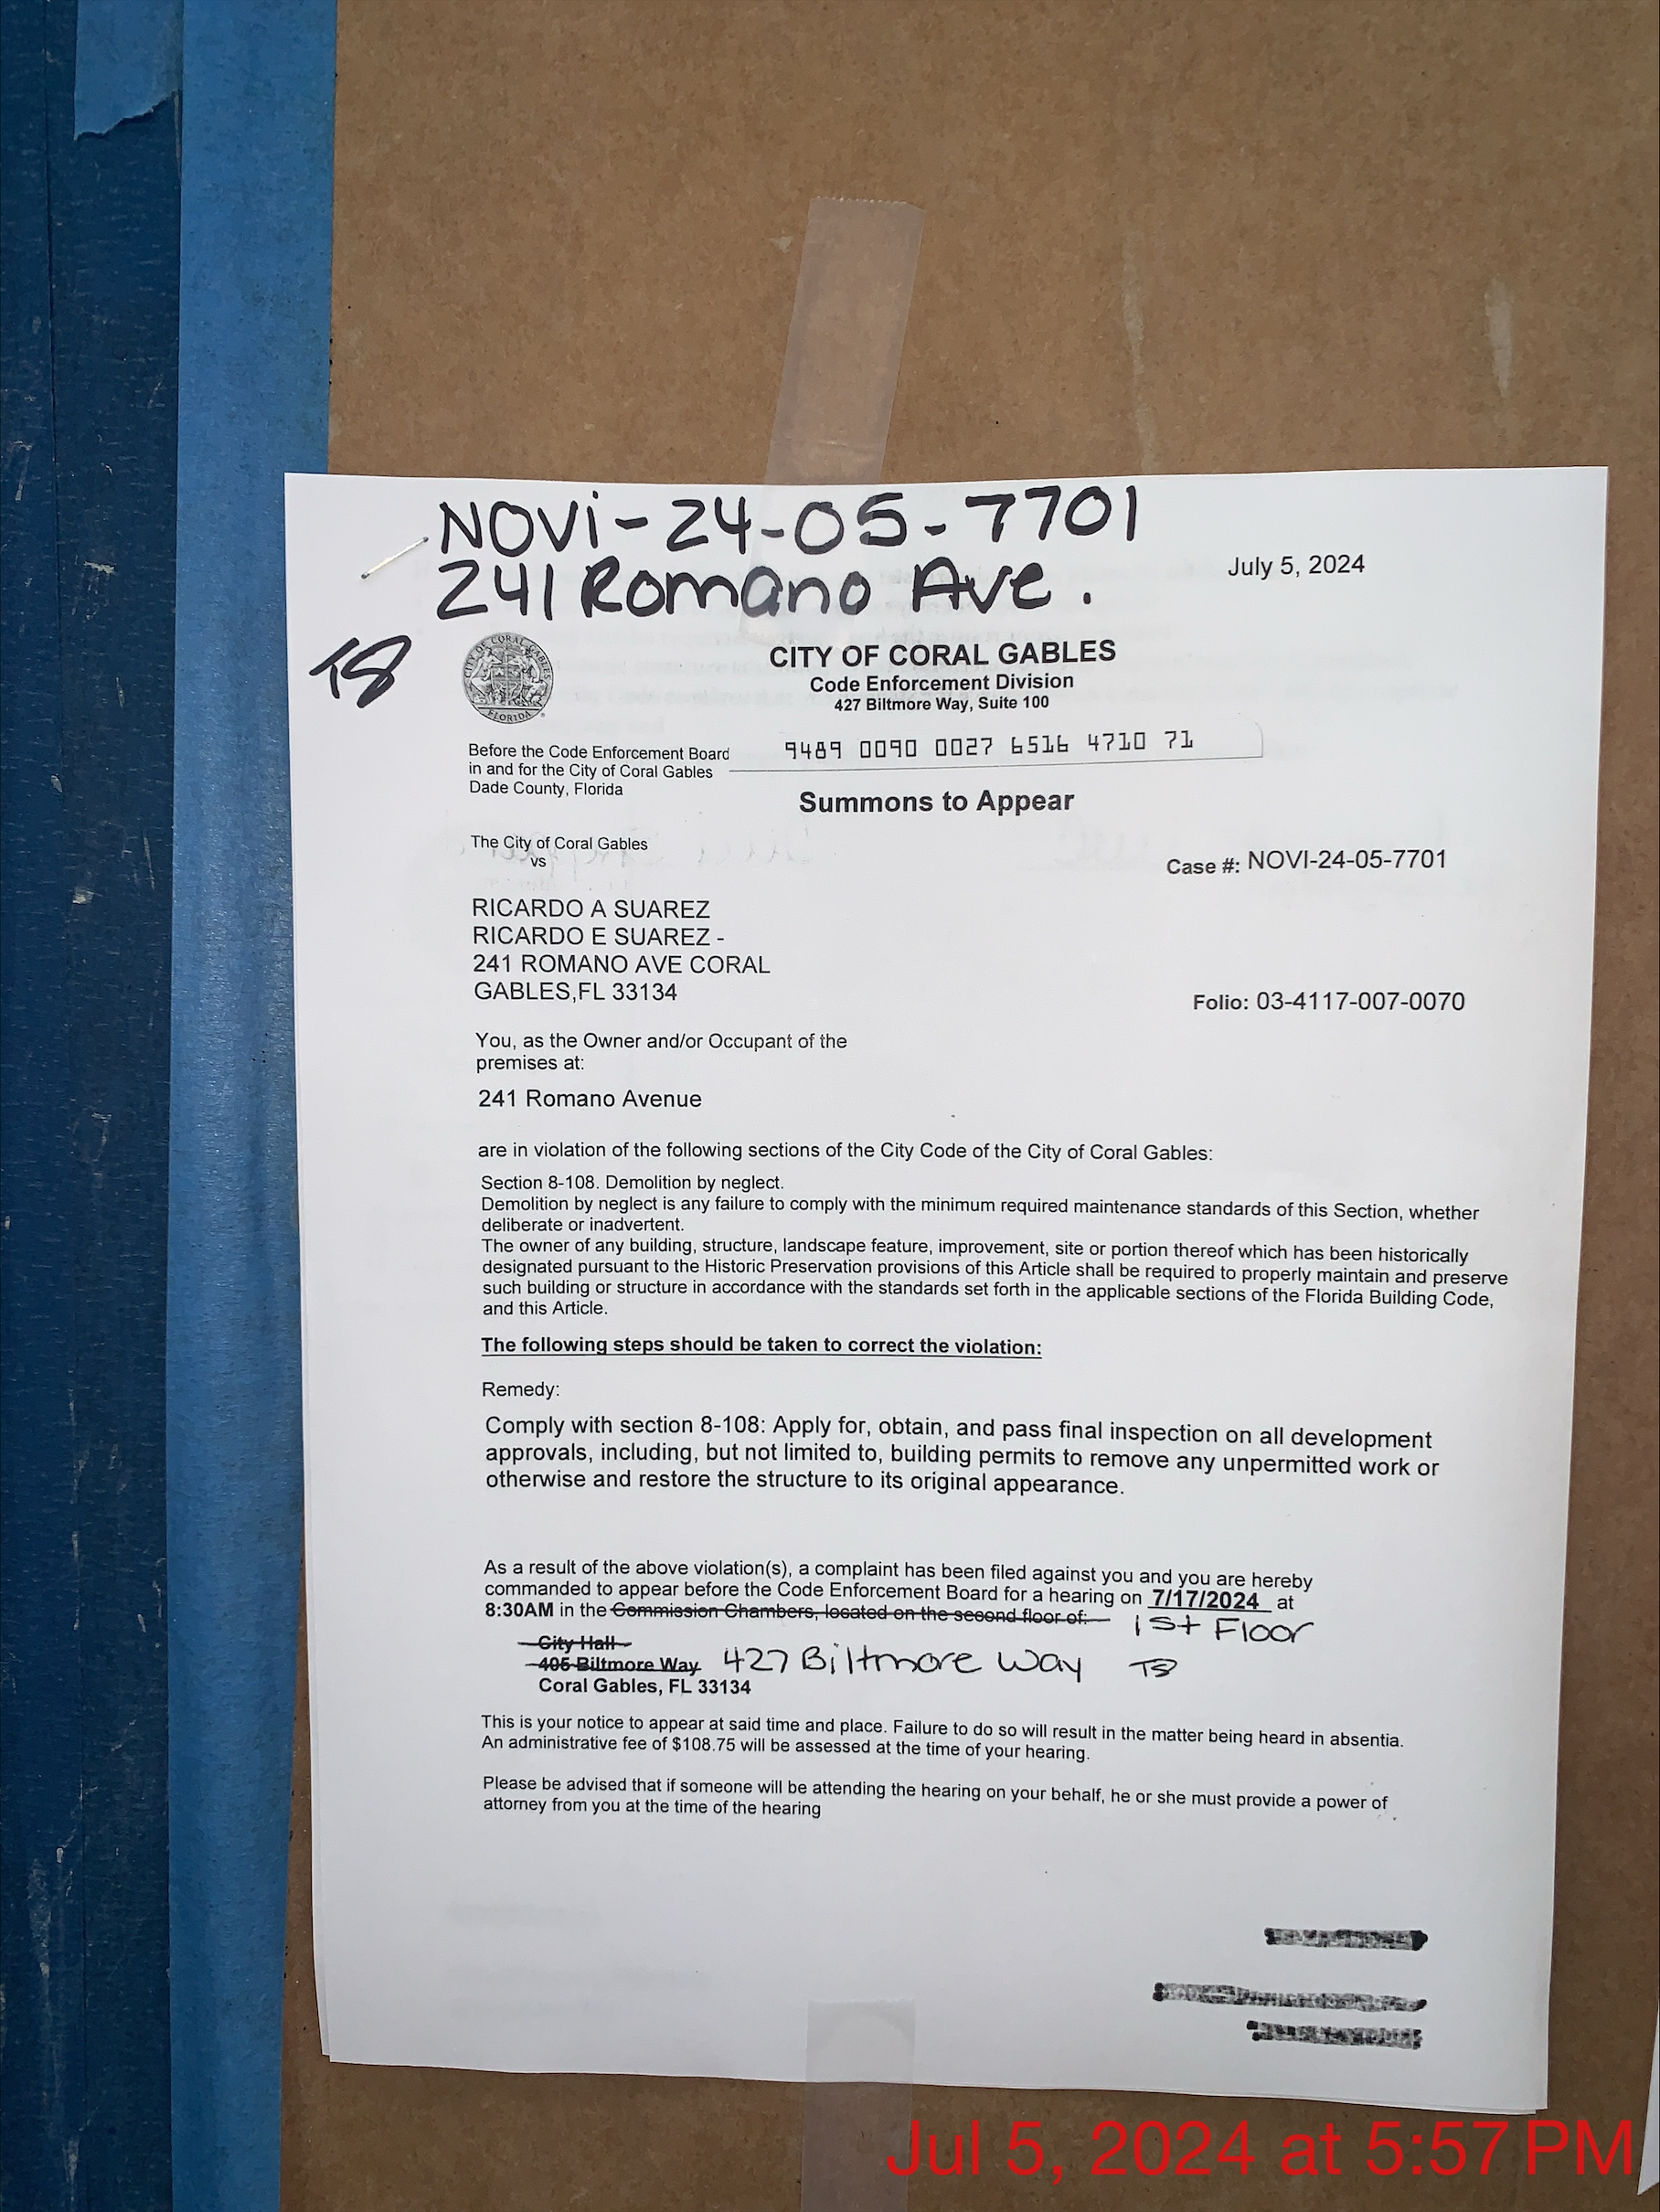 NOVi-24-05-7701
241 Romano Ave.
July 5, 2024
TS
CITY OF CORAL GABLES
FLORIDA
CITY OF CORAL GABLES
Code Enforcement Division
427 Biltmore Way, Suite 100
Before the Code Enforcement Board
in and for the City of Coral Gables
Dade County, Florida
9489 0090 0027 6516 4710 71
Summons to Appear
The City of Coral Gables
vs
Case #: NOVI-24-05-7701
RICARDO A SUAREZ
RICARDO E SUAREZ -
241 ROMANO AVE CORAL
GABLES,FL 33134
Folio: 03-4117-007-0070
You, as the Owner and/or Occupant of the
premises at:
241 Romano Avenue
are in violation of the following sections of the City Code of the City of Coral Gables:
Section 8-108. Demolition by neglect.
Demolition by neglect is any failure to comply with the minimum required maintenance standards of this Section, whether
deliberate or inadvertent.
The owner of any building, structure, landscape feature, improvement, site or portion thereof which has been historically
designated pursuant to the Historic Preservation provisions of this Article shall be required to properly maintain and preserve
such building or structure in accordance with the standards set forth in the applicable sections of the Florida Building Code,
and this Article.
The following steps should be taken to correct the violation:
Remedy:
Comply with section 8-108: Apply for, obtain, and pass final inspection on all development
approvals, including, but not limited to, building permits to remove any unpermitted work or
otherwise and restore the structure to its original appearance.
As a result of the above violation(s), a complaint has been filed against you and you are hereby
commanded to appear before the Code Enforcement Board for a hearing on 7/17/2024 at
8:30AM in the Commission Chambers, located on the second floor of: 1st Floor
City Hall
405 Biltmore Way 427 Biltmore Way TS
Coral Gables, FL 33134
This is your notice to appear at said time and place. Failure to do so will result in the matter being heard in absentia.
An administrative fee of $108.75 will be assessed at the time of your hearing.
Please be advised that if someone will be attending the hearing on your behalf, he or she must provide a power of
attorney from you at the time of the hearing
Jul 5, 2024 at 5:57 PM